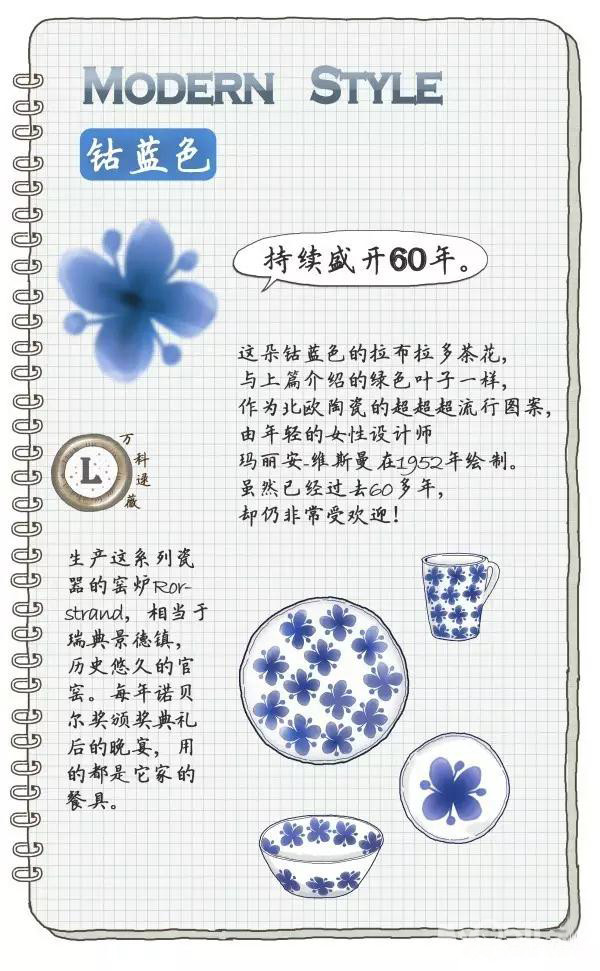 MODERN STYLE
钴蓝色
持续盛开60年。
这朵钴蓝色的拉布拉多茶花，
与上篇介绍的绿色叶子一样，
作为北欧陶瓷的超超超流行图案，
由年轻的女性设计师
玛丽安-维斯曼在1952年绘制。
虽然已经过去60多年，
却仍非常受欢迎！
L
万科逯薇
生产这系列瓷
器的窑炉Ror-
strand，相当于
瑞典景德镇，
历史悠久的官
窑。每年诺贝
尔奖颁奖典礼
后的晚宴，用
的都是它家的
餐具。